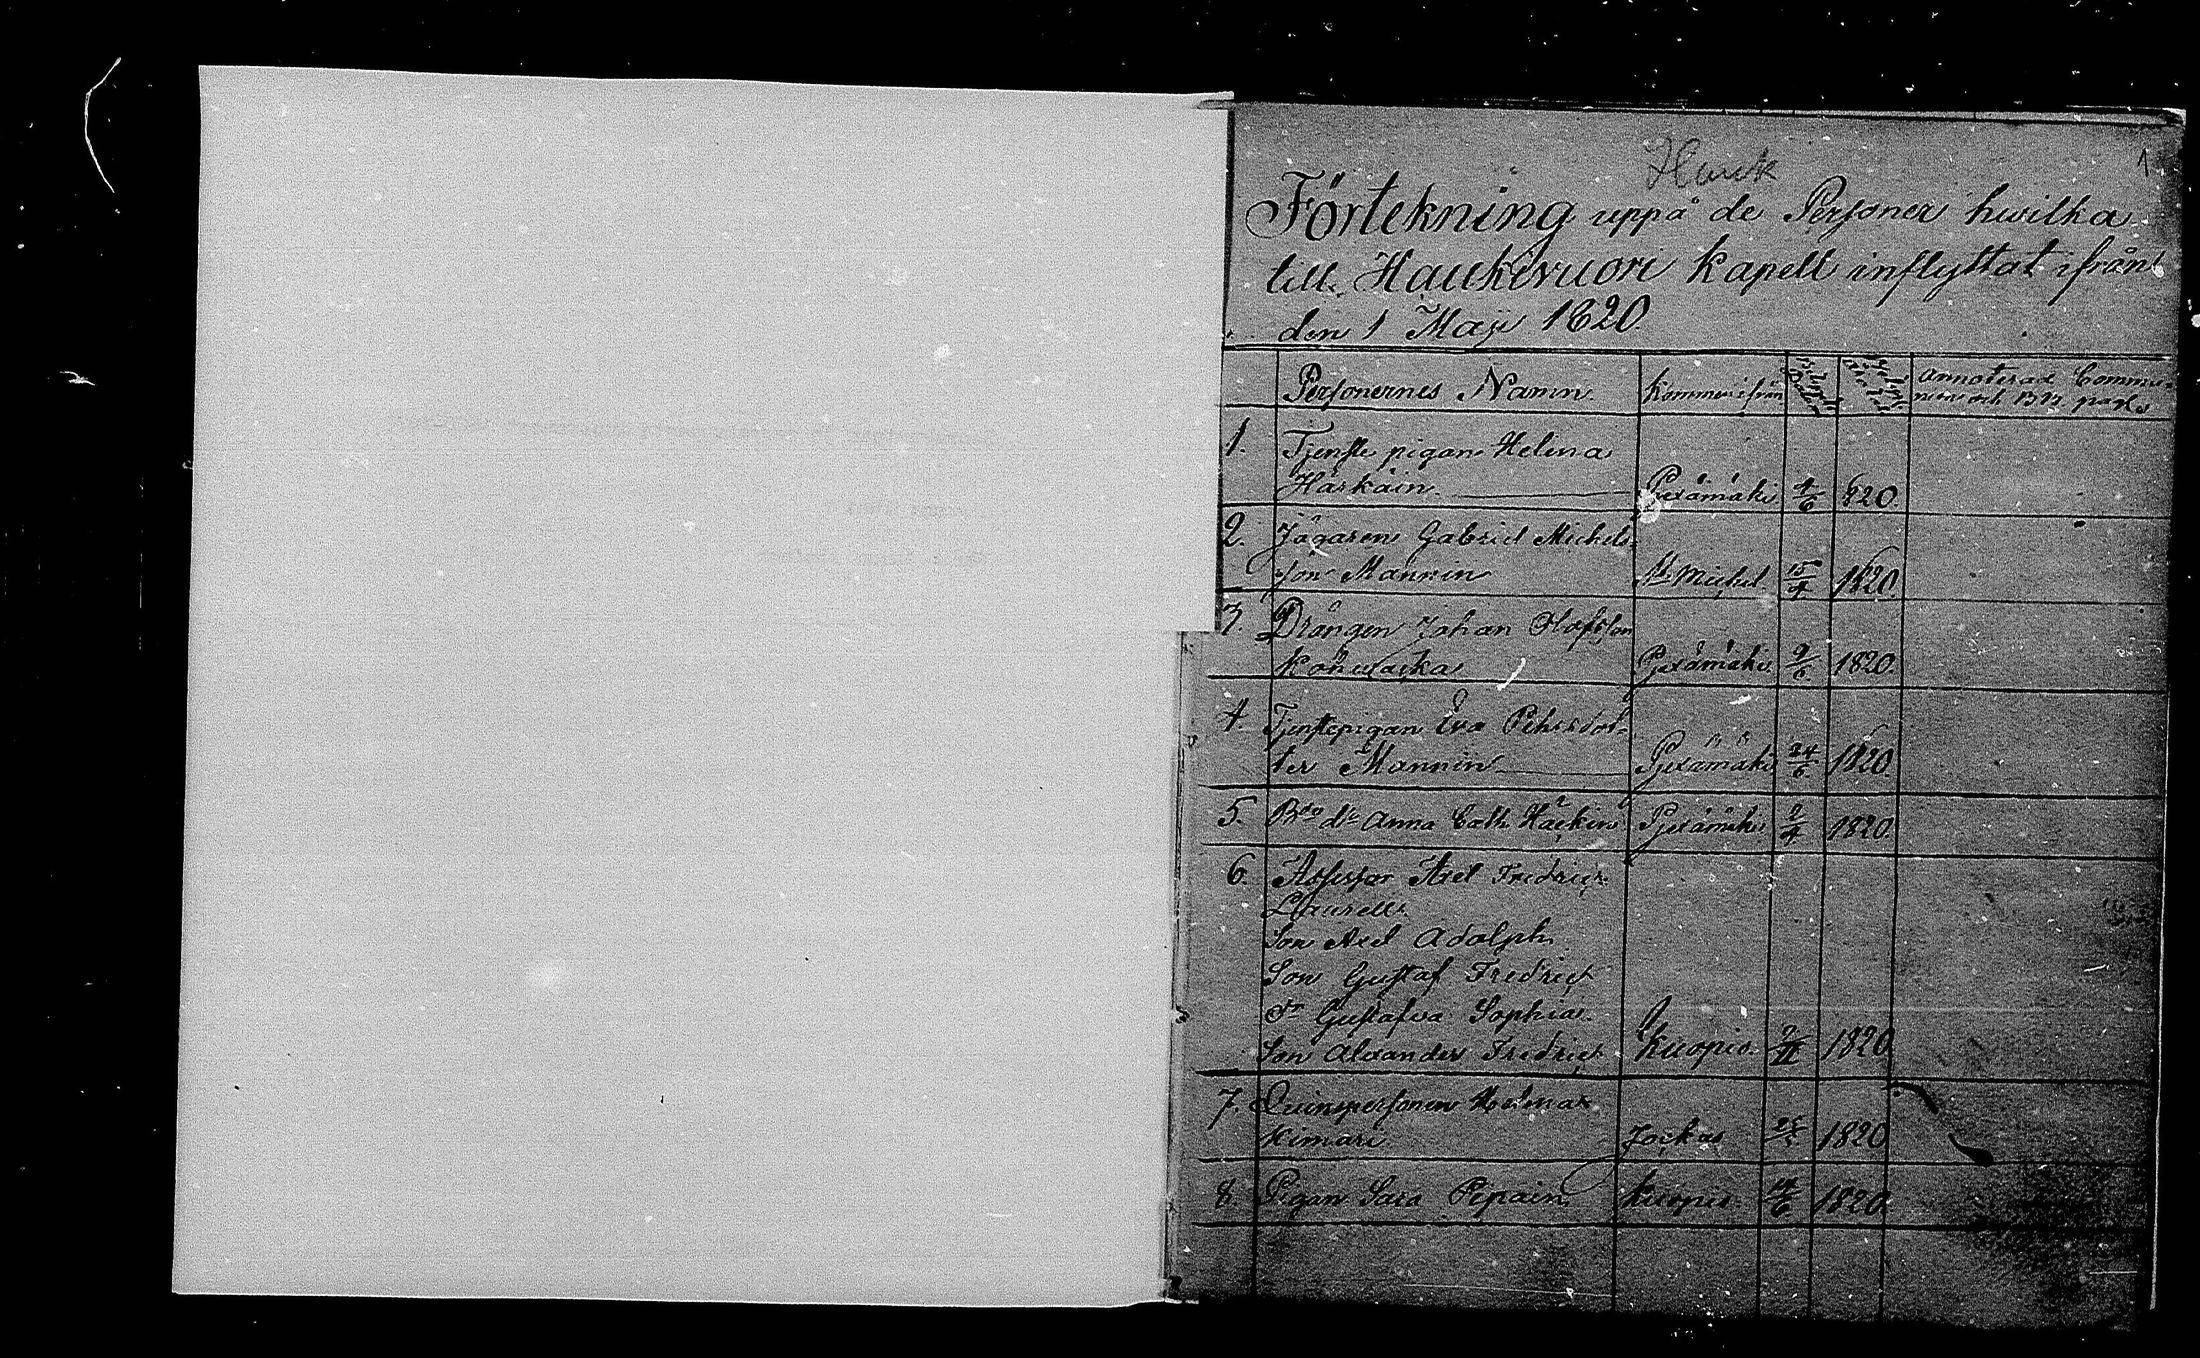 Hauk
1
Förtekning uppå de Personer hvilka
till Haukivuori Kapell inflyttat ifrån
den 1 Maji 1820.
Personernes Namn. Kommen ifrån annoterad Commu-
1. Tjenste pigan Helena
Härkäin. Pjexämäki 4/6 820.
2. Jägaren Gabriel Michels-
son Mannin St Michel 15/4 1820.
3. Drängen Johan Olofsson
Pjexämäki 9/6 1820.
4. Tjenstepigan Eva Pehrsdot-
ter Mannin Pjexämäki 24/6 1820.
5. Anna Cath. Pjexämäki 2/4 1820.
6. Assessor Axel Fredric
Laurell
Son Axel Adolph
Son Gustaf Fredrict
Gustafva Sophia.
Son Alexander Fredrict Kuopio. 1820
7. Quinspersonen Helena
Himari Jockas 1820
8. Pigan Sara Pepain Kuopio 1820.